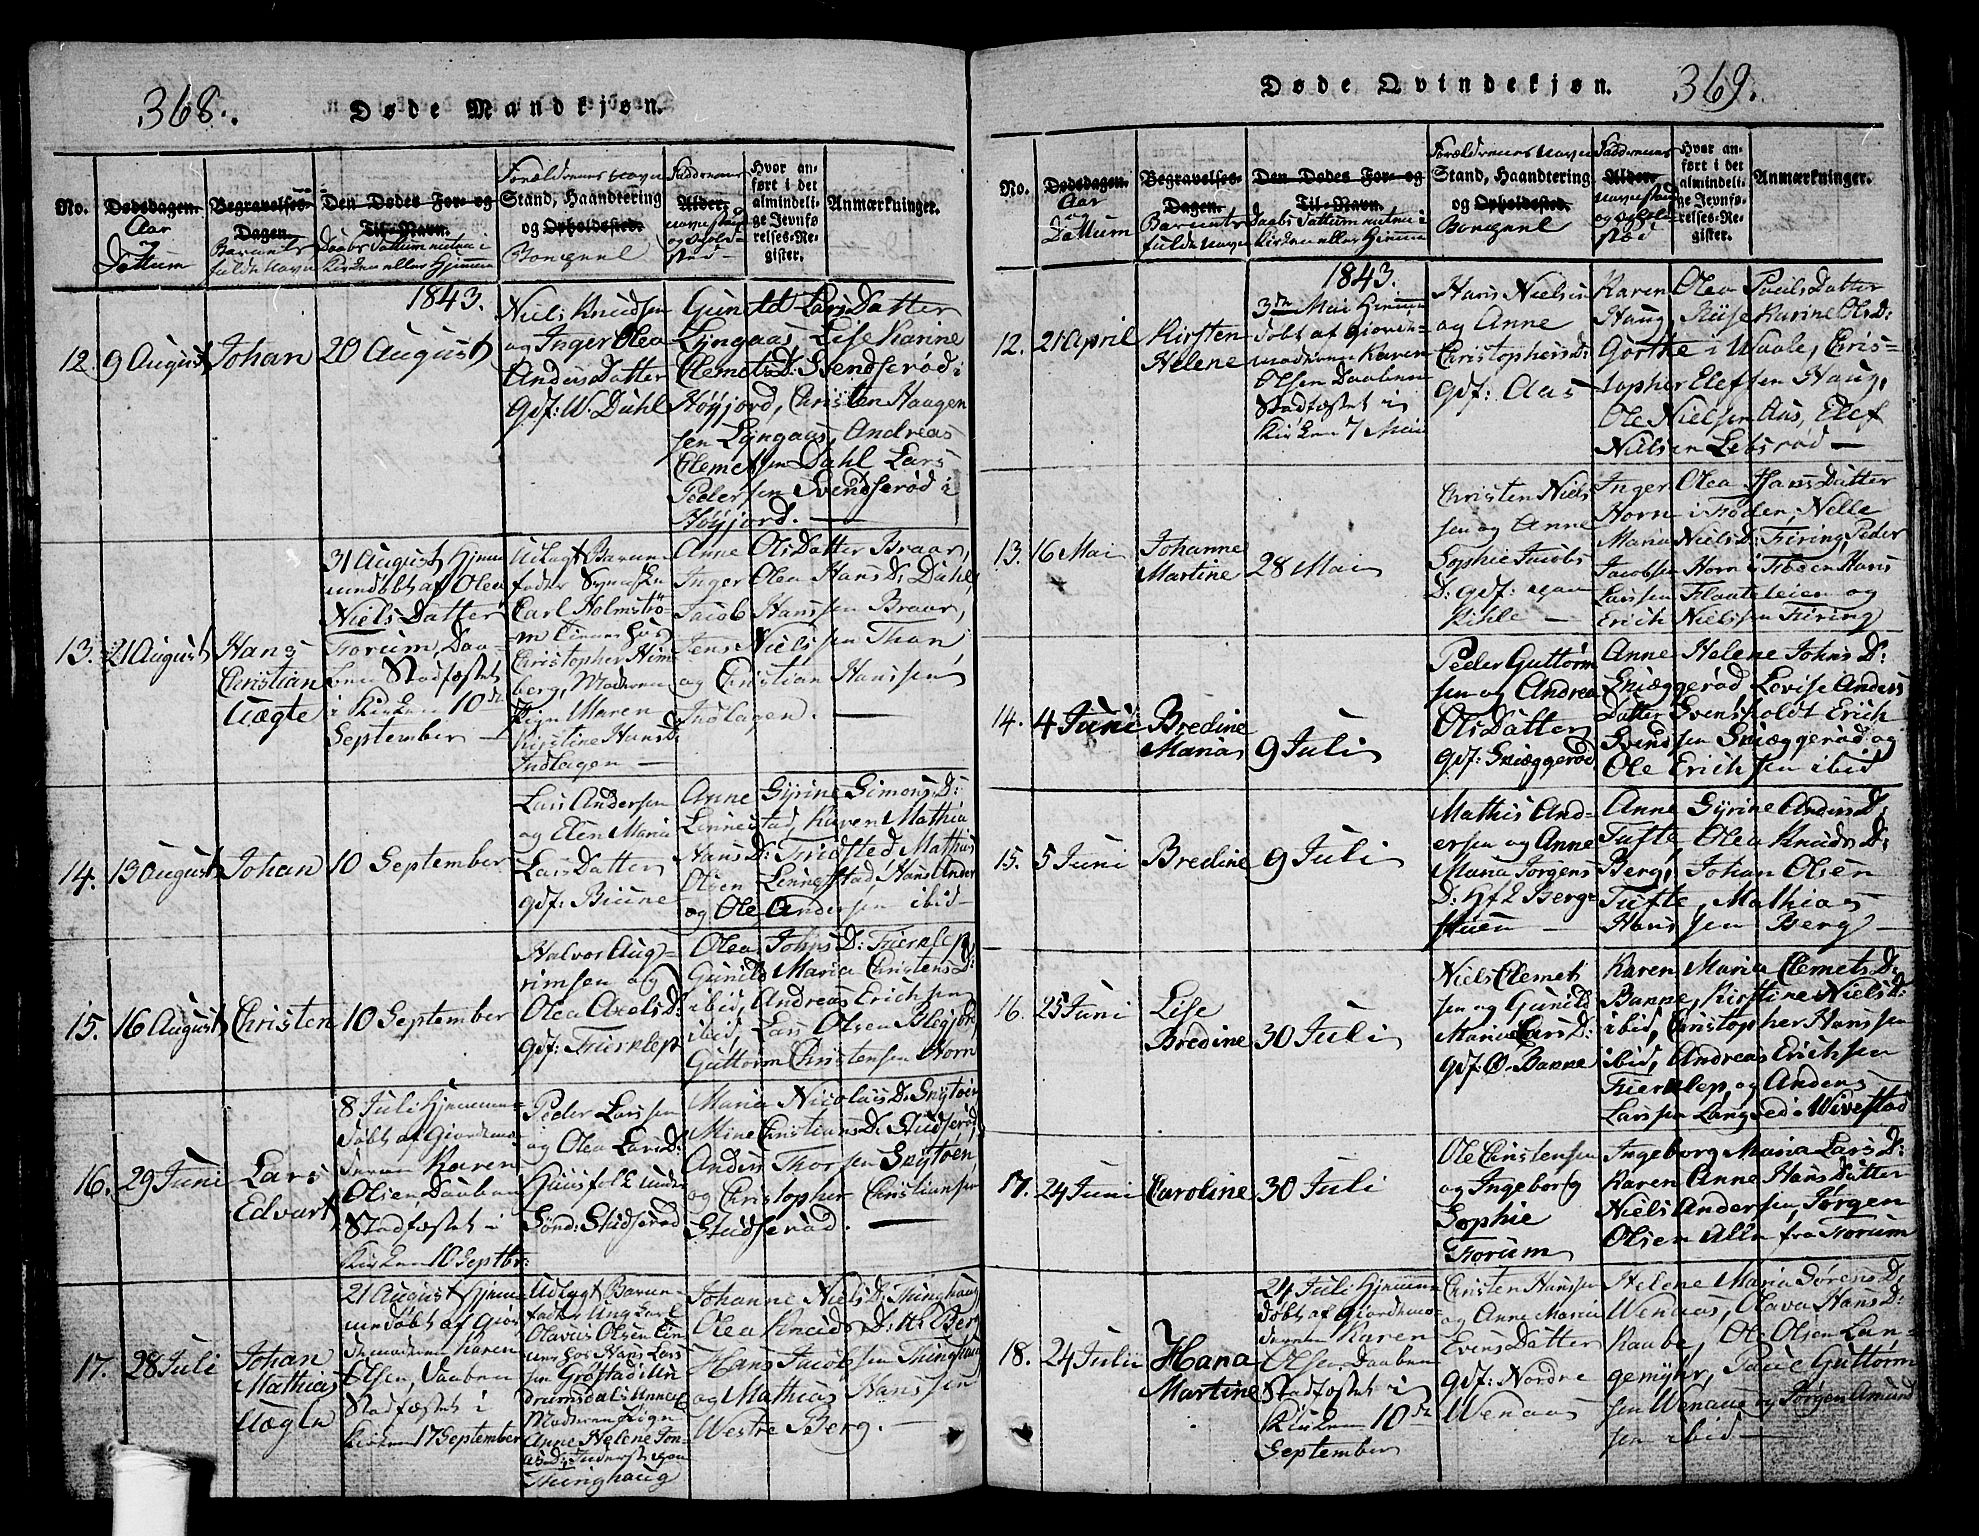 368.
Døde Mandkjøn.
No.
Dødsdagen.
Aar
Dattum
Begravelses-
Dagen.
Barnets
fulde Navn
Den Dødes For- og
Til-Navn.
Daabs Dattum enten i
Kirken eller Hjemme
Forældrenes Navn
Stand, Haandtering
og Opholdsted.
Boepæl
Faddernes
Alder.
Navne Stand
og Ophold-
sted
Hvor an-
ført i det
almindeli-
ge Jevnfø
relses-Re-
gister.
Anmærkninger.
1843.
12.
9 August
Johan
20 August
Niels Knudsen
og Inger Olea
Anders Datter
Gdf: W. Dahl
Gunild Lars Datter
Lÿngaas, Lise Karine
Clemets D: Svendserød i
Høÿjord, Christen Haagen
sen Lÿngaas, Andreas
Clemetsen Dahl Lars
Pedersen Svendserød i
Høÿjord.
13.
21 August
Hans
Christian
Uægte
31 August Hjem
mendøbt af Olea
Niels Datter
Forum, Daa-
ben Stadfæstet
i Kirken 10de
September
Udlagt Barne
fader
Carl Holmstrø-
m
Christopher Him
berg, Moderen
Pige Maren
Kirstine Hans D:
Indlagen
Anne Ols Datter Braar,
Inger Olea Hans D: Dahl,
Jacob Hanssen Braar,
Jens Nielssen Thon
og Christian Hanssen
Indlagen.
14.
13 August
Johan
10 September
Lars Andersen
og Elen Maria
Lars Datter
gdf: Biune
Anne Sÿrine Simons D:
Lennestad, Karen Mathia
Hans D: Fridsted Mathias
Olsen Lennestad, Hans Ander
og Ole Andersen ibid
15.
16 August
Christen
10 September
Halvor Aug-
rimsen og
Olea Axels D:
gdf: Fierklep
Olea Johns D: Fierklep
Gunild Maria Christens D:
ibid, Andreas Erichsen
ibid, Lars Olsen
Guttorm Christensen Horn
16.
29 Juni
Lars
Edvart
8 Juli Hjemme-
døbt af Giordemo-
deren Karen
Olsen, Daaben
Stadfæstet i
Kirken 10 Septbr:
Peder Larssen
og Olea Lars D:
Huusfolk under
Sønd: Stuidserød
Maria Nicolais D: Snÿtøen
Mine Christians D: Studserød,
Anders Thorsen Snÿtøen,
og Christopher Christiansen
Studserød.
17.
28 Juli
Johan
Mathias
Uægte
21 August Hjem-
mendøbt af Gior
demoderen Karen
Olsen, Daaben
Stadfæstet i
Kirken 17 September
Udlagt Barne-
fader Ung karl
Olavus Olsen
Hans Lars
sen
Moderen Pige
Anne Helene
Thinghaug
Johanne Niels D: Thinghaug
Olea Knuds D: W: Berg
Hans Jacobsen Thinghaug
og Mathias Hanssen
Westre Berg.
Døde Qvindekjøn.
369.
No.
Dødsdagen.
Aar
og
Dattum
Begravelses-
Dagen.
Barnets
fulde Navn
Den Dødes For- og
Til-Navn.
Daabs Dattum enten i
Kirken eller Hjemme
Forældrenes Navn
Stand, Haandtering
og Opholdsted.
Boepæl
Faddernes
Alder.
Navne Stand
og Ophold-
sted
Hvor an-
ført i det
almindeli-
ge Jevnfø-
relses-Re-
gister.
Anmærkninger.
1843.
12.
21 April
Kirsten
Helene
3die Mai Hjemme
døbt af Giorde-
moderen Karen
Olsen Daaben
Stadfæstet i
Kirken 7 Mai
Hans Nielsen
og Anne
Christophers D:
gdf: Aas
Karen Olea Pouls Datter
Haug, Karine Ols D:
i Waale, Chris-
topher Elefsen Haug,
Ole Nielsen Aas, Elef
Nielsen Lebsrød
13.
16 Mai
Johanne
Martine
28 Mai
Christen Niels
sen og Anne
Sophie Jacobs
D: gdf:
Kihle
Inger Olea Hans Datter
Horn i Foden, Nelle
Maria Niels D: Firing, Peder
Jacobsen Horn i Foden Hans
Larssen Flaateeien og
Erich Nielssen Firing
14.
4 Juni
Bredine
Maria
9 Juli
Peder Guttorm
sen og Andrea
Ols Datter
gdf: Sniæggerød
Anne Helene Johns D:
Sniæggerød Lovise Anders
Datter Svensholdt Erich
Svendsen Sniæggerød og
Ole Erichsen ibid
15.
5 Juni
Bredine
9 Juli
Mathis And-
ersen og Anne
Maria Jørgens
D: Hf Berg-
stuen
Anne Sÿrine Anders D:
Tufte, Olea Knuds D:
Berg, Johan Olsen
Tufte, Mathias
Hanssen Berg
16.
25 Juni
Lise
Bredine
30 Juli
Niels Clemet
sen og Gunild
Maria Lars D:
gdf: Ø. Banne
Karen Maria Clemets D:
Banne, Kirstine Niels D:
ibid, Christopher Hanssen
ibid, Andreas Erichsen
Fierklep, og Anders
Larssen Langsed i Wivestad
17.
24 Juni
Caroline
30 Juli
Ole Christensen
og Ingeborg
Sophie
Forum
Ingeborg Maria Lars D:
Karen Anne Hans Datter
Niels Andersen, Jørgen
Olsen Alle fra Forum
18.
24 Julii
Hana
Martine
24 Juli Hjemme
døbt af Giordemo-
deren Karen
Olsen, Daaben
Stadfæstet i
Kirken 10de
September
Christen Hanssen
og Anne Maria
Evens Datter
gdf: Nordre
Wenaas
Helene Maria Sørens D:
Wenaas, Olava Hans D:
Raabe, Ole Olsen Lan-
gemÿhr, Poul Guttorm
sen Wenaas og Jørgen Amund
sen ibid